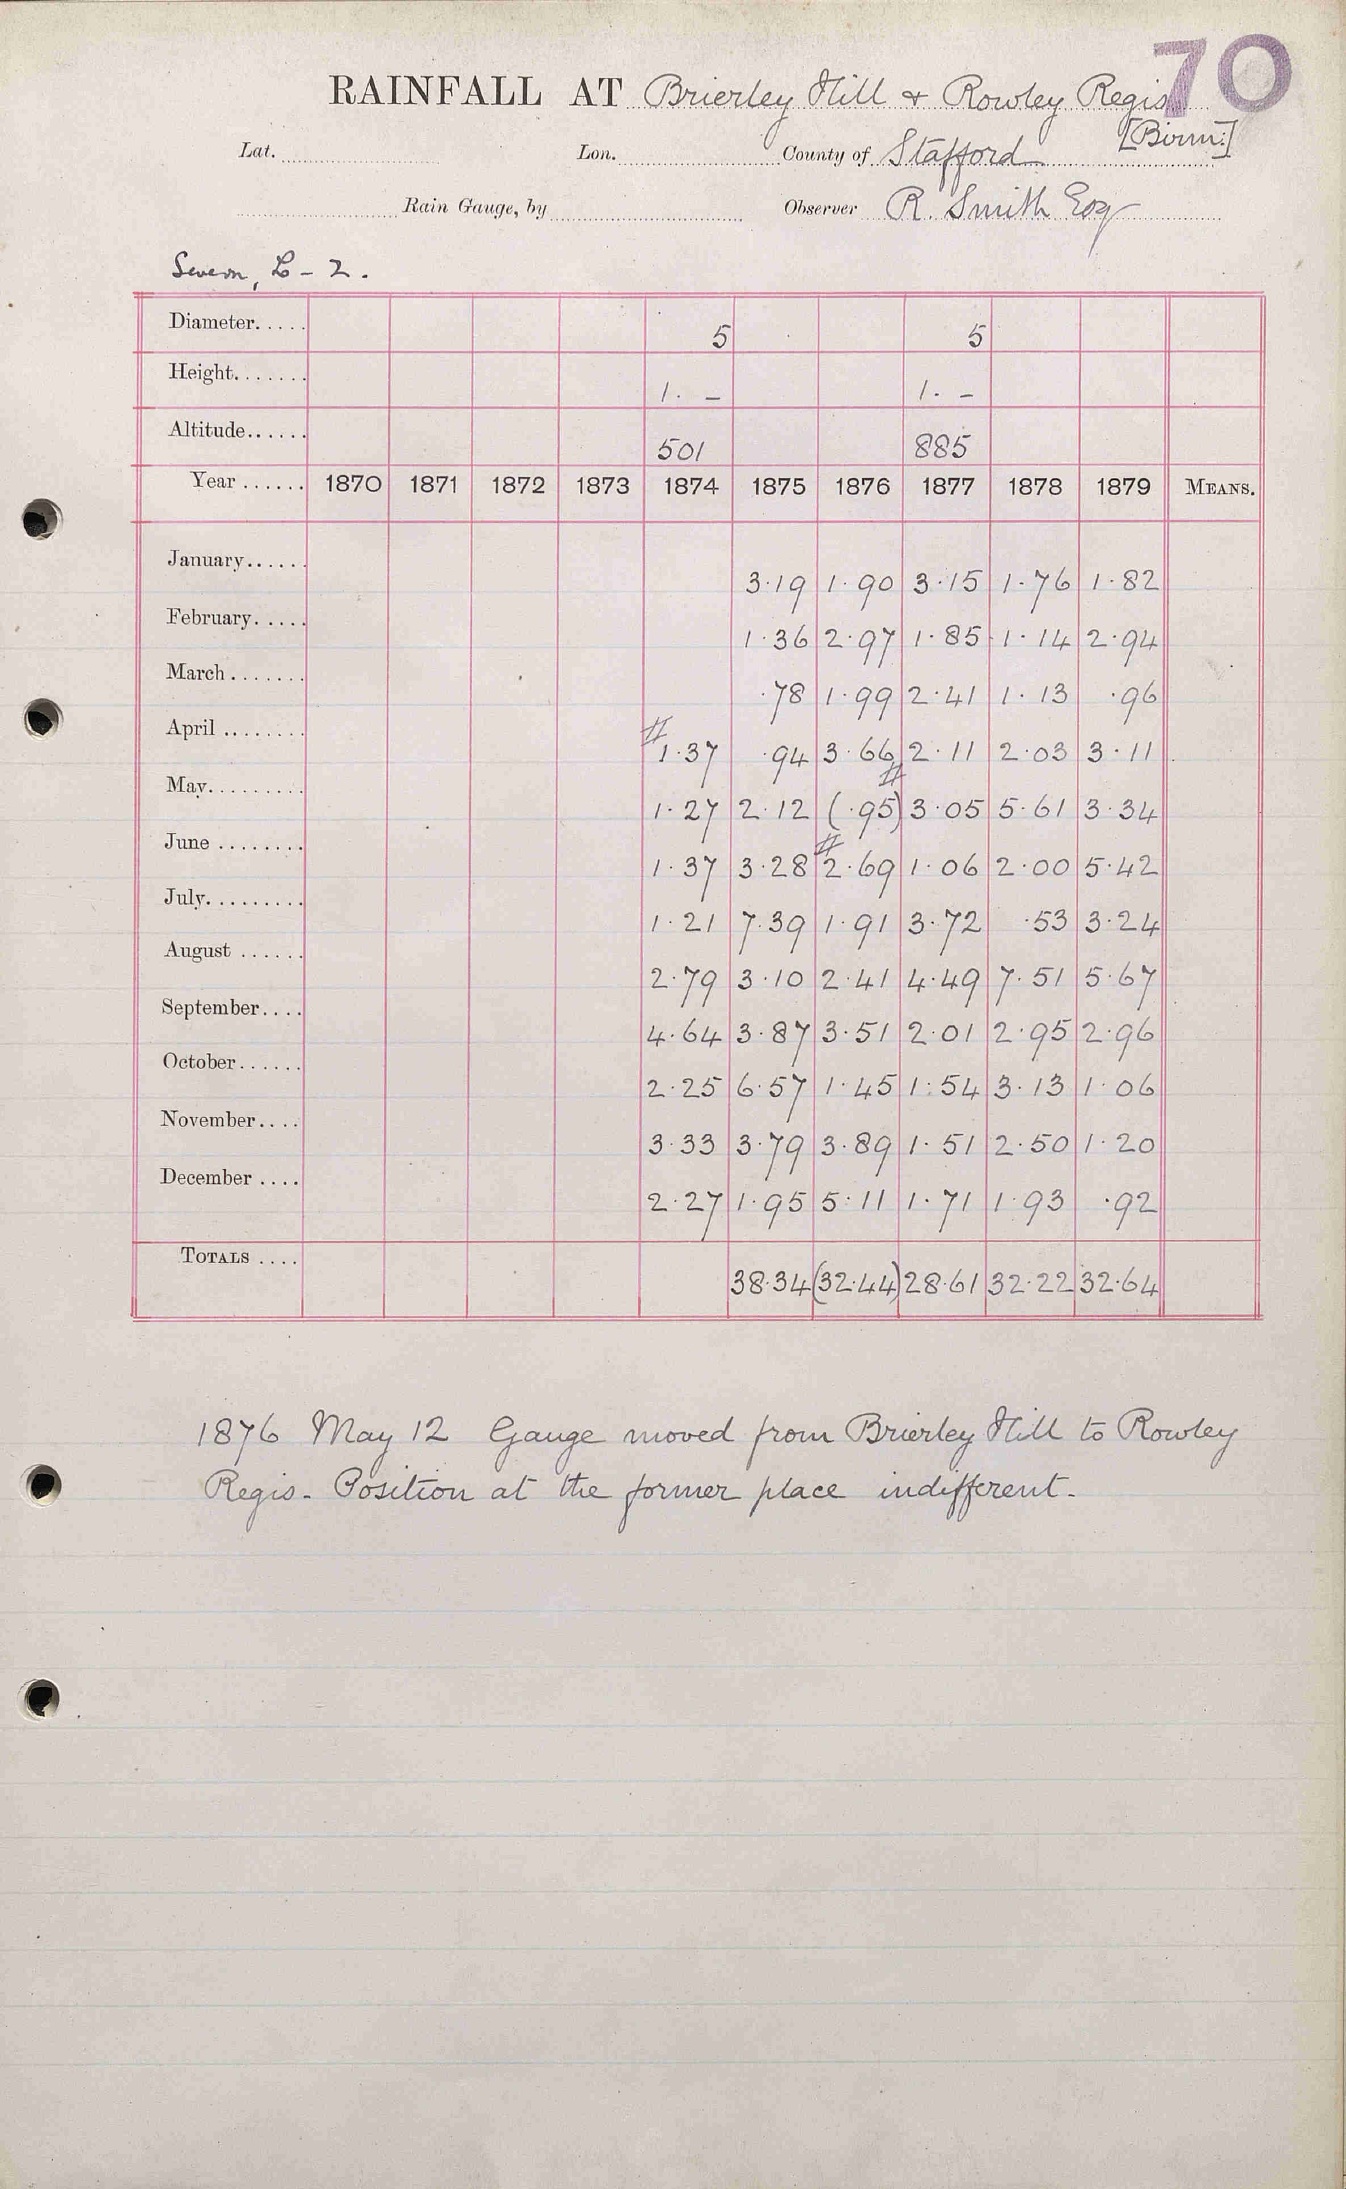 70
RAINFALL AT Brierley Hill & Rowley Regis
[Birm:]
Lat. Lon. County of Stafford
Rain Gauge, by Observer R. Smith Esq
Severn, L - 2.
Diameter..... 5 5
Height....... 1. - 1. -
Altitude...... 501 885
Year ...... 1870 1871 1872 1873 1874 1875 1876 1877 1878 1879 MEANS.
January...... 3.19 1.90 3.15 1.76 1.82
February..... 1.36 2.97 1.85 1.14 2.94
March ....... .78 1.99 2.41 1.13 .96
April ........ # 1.37 .94 3.66 2.11 2.03 3.11
May......... 1.27 2.12 (.95) # 3.05 5.61 3.34
June ........ 1.37 3.28 # 2.69 1.06 2.00 5.42
July......... 1.21 7.39 1.91 3.72 .53 3.24
August ...... 2.79 3.10 2.41 4.49 7.51 5.67
September.... 4.64 3.87 3.51 2.01 2.95 2.96
October...... 2.25 6.57 1.45 1.54 3.13 1.06
November.... 3.33 3.79 3.89 1.51 2.50 1.20
December .... 2.27 1.95 5.11 1.71 1.93 .92
TOTALS .... 38.34 (32.44) 28.61 32.22 32.64
1876 May 12 Gauge moved from Brierley Hill to Rowley
Regis. Position at the former place indifferent.